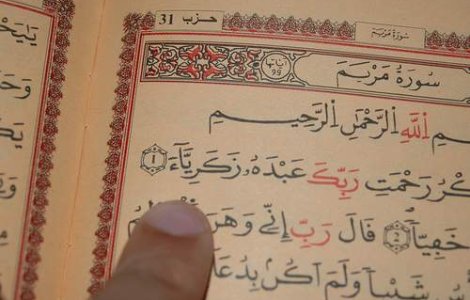 حزب 31
سورة مريم
سُورَةُ مَرْيَمَ
ءاياتها 99
اِللَّهِ اِلرَّحْمَٰنِ اِلرَّحِيمِ
رَحْمَتِ رَبِّكَ عَبْدَهُۥ زَكَرِيَّآءَ 1
خَفِيّاً 2 قَالَ رَبِّ إِنِّي وَهَنَ
شَيْباً وَلَمْ أَكُنْ بِدُعَا